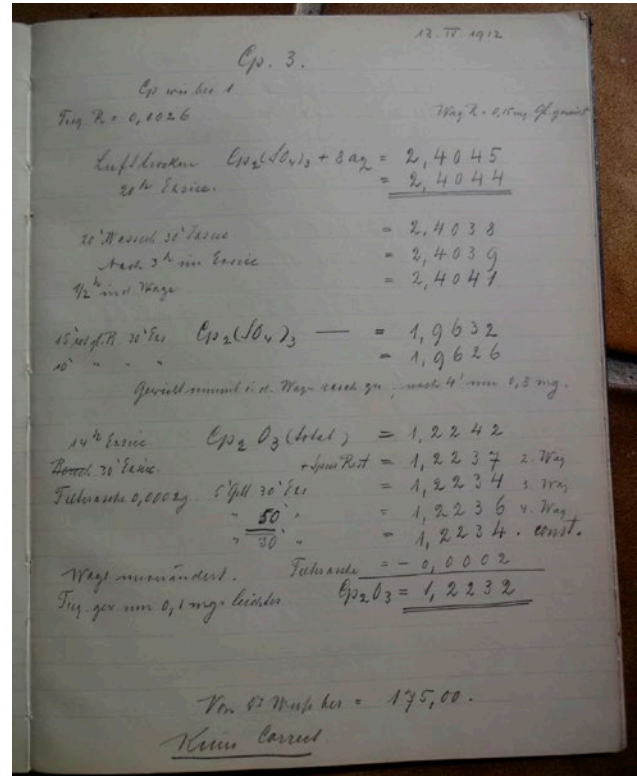 12. IV. 1912
Cp. 3.
Cp wie bei 1.
Tieg. R = 0,1026
Wag R = 0,15 mg
Lufttrocken Cp2(SO4)3 + 8 aq = 2,4045
20h Exsicc. = 2,4044
30' Exsicc = 2,4038
Nach 3h im Exsicc = 2,4039
1/2h in d. Wage = 2,4041
15' 30' Exs Cp2(SO4)3 — = 1,9632
10' " " " = 1,9626
Gewicht nimmt i. d. Wage rasch zu, nach 4' um 0,3 mg.
14h Exsicc. Cp2O3 (total) = 1,2242
30' Exsicc. + = 1,2237 2. Wag
0,0002g 5' 30' Exs = 1,2234 3. Wag
" 50' " = 1,2236 4. Wag
" 30' " = 1,2234 . const.
Wage unverändert. = - 0,0002
Tieg. um 0,1 mgr leichter Cp2O3 = 1,2232
Von = 175,00.
Correct